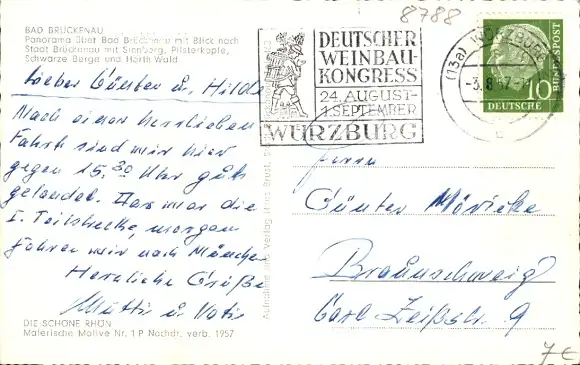 8788
BAD BRÜCKENAU
Panorama über Bad Brückenau mit Blick nach
Stadt Brückenau mit Sinnberg, Pilsterkopfe,
Schwarze Berge und Horth Wald
Lieber Günther u. Hilde
Nach einer herrlichen
Fahrt sind wir hier
gegen 15,30 Uhr gut
gelandet. Das war die
I. Teilstrecke, morgen
fahren wir nach München
Herzliche Grüße
Mutti u. Vati
DIE SCHÖNE RHÖN
Malerische Motive Nr. 1 P Nachdr. verb. 1957
DEUTSCHER
WEINBAU-
KONGRESS
24. AUGUST-
1. SEPTEMBER
WÜRZBURG
(13a) WÜRZBURG
-3.8.57-
c
10
DEUTSCHE
BUNDESPOST
Aufnahme und Verlag
Herrn
Günter Möricke
Braunschweig
Carl Zeißstr. 9
7€